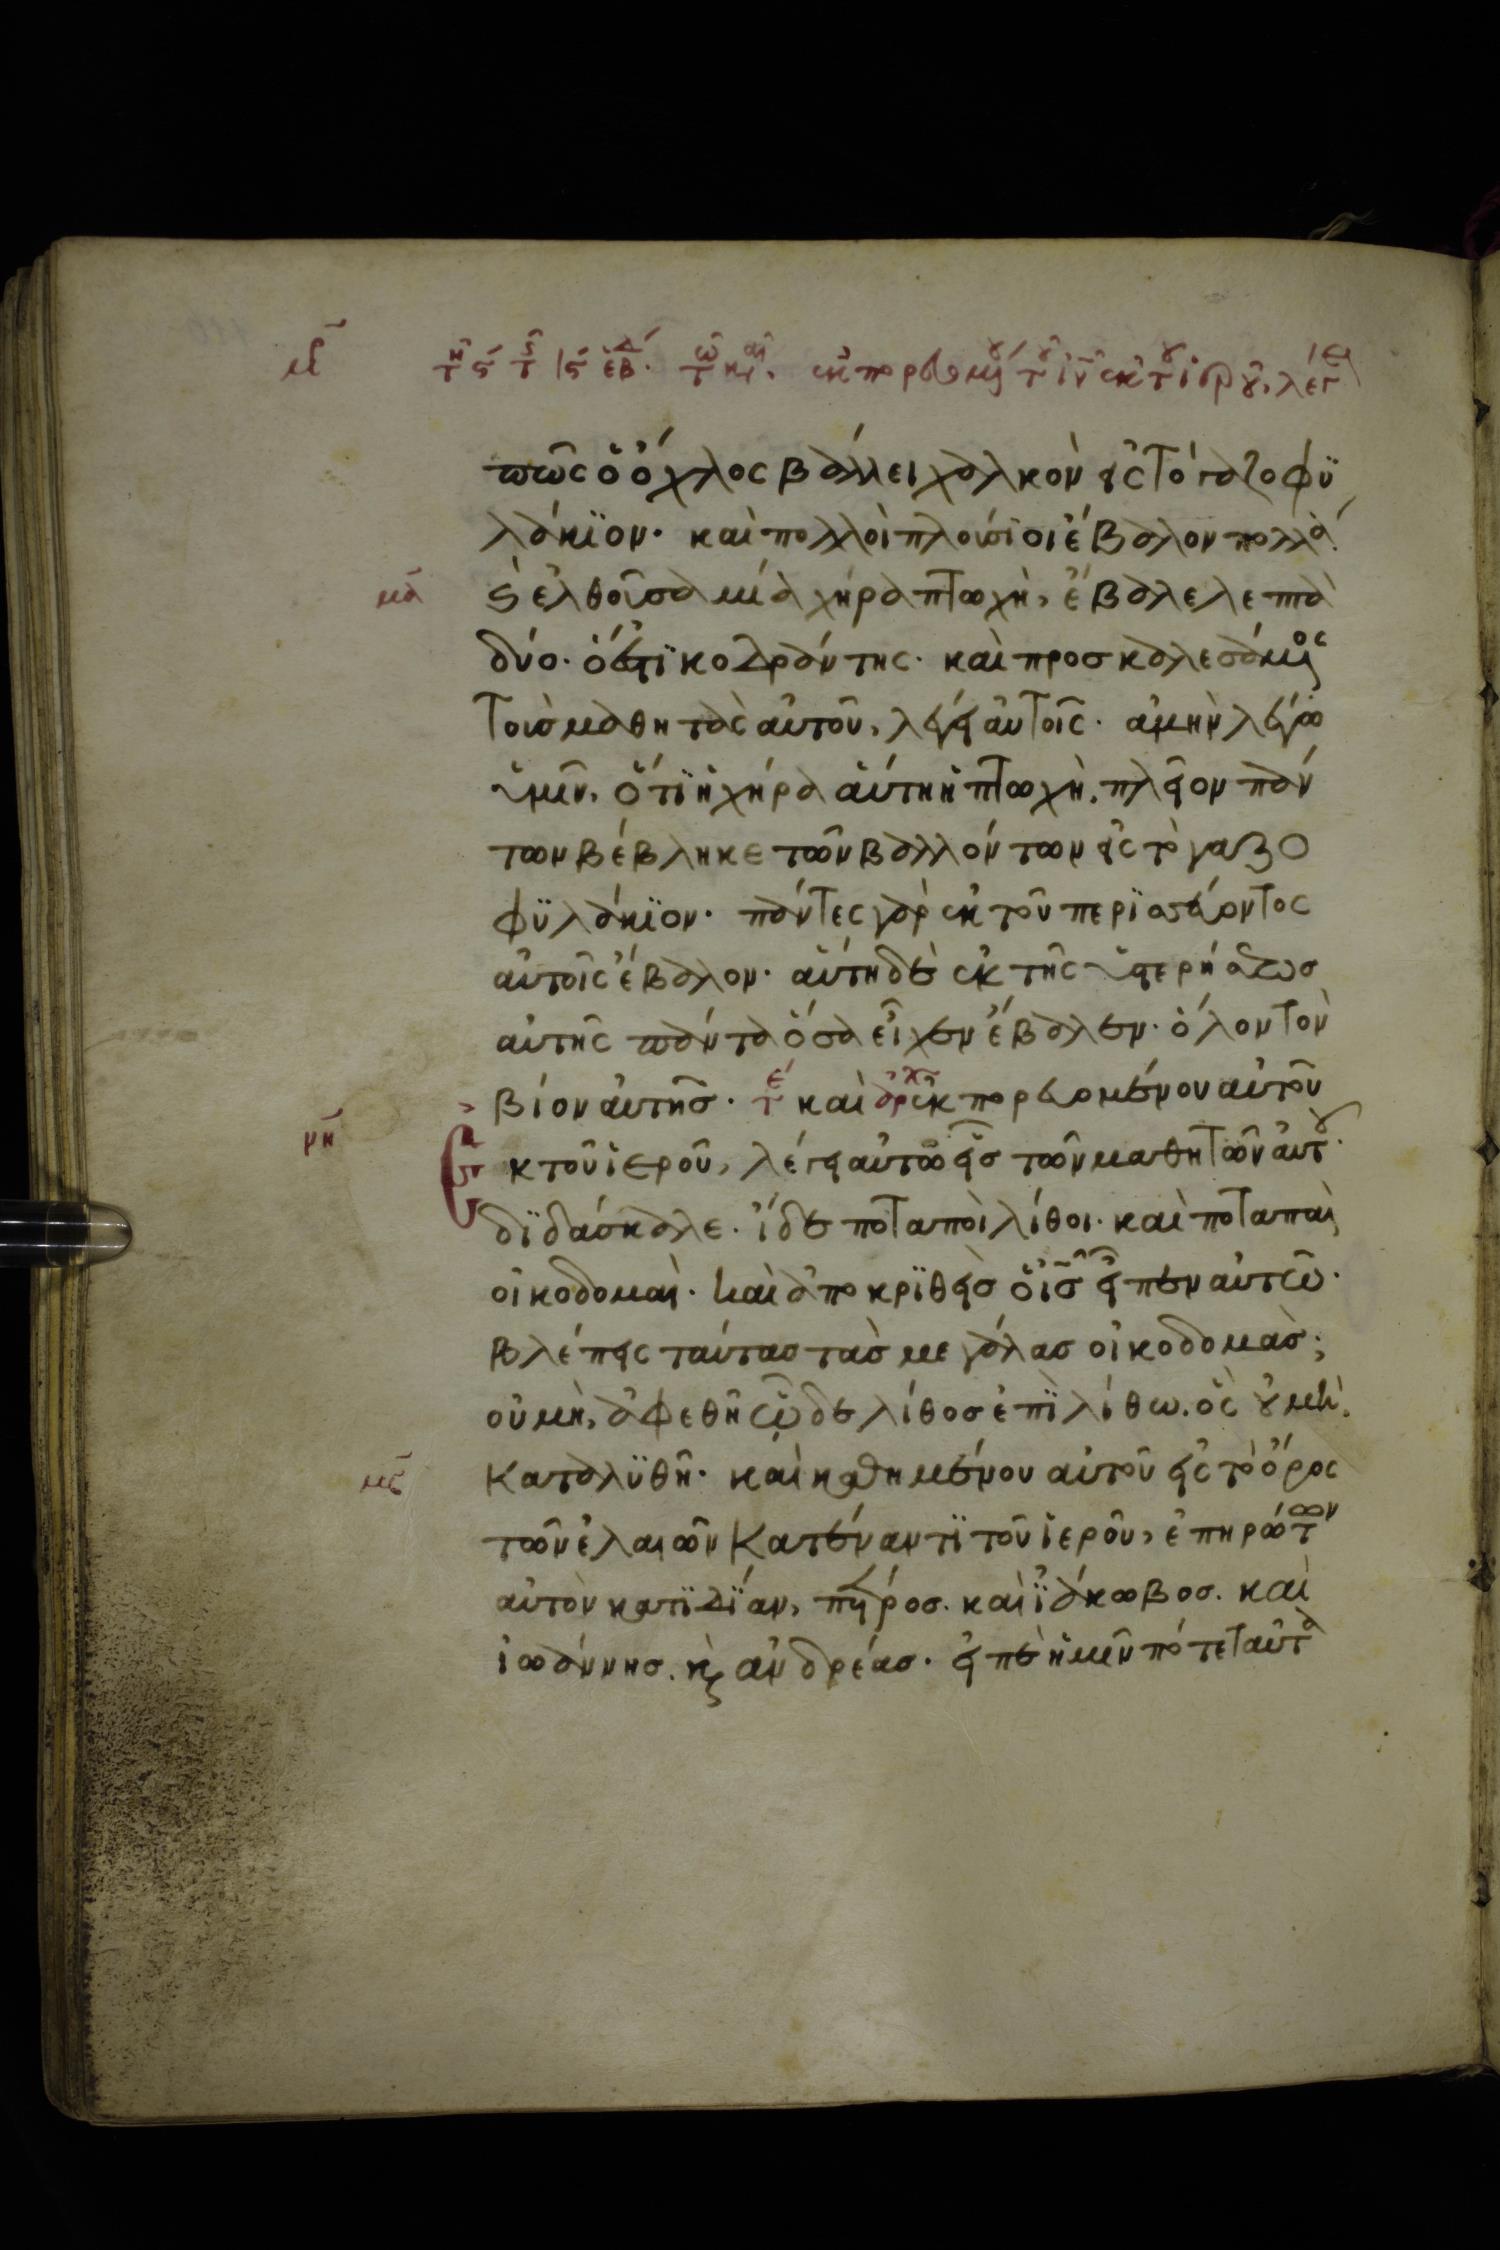 πῶς ὁ ὄχλος βάλλει χαλκὸν εἰς τὸ γαζοφϋ
λάκϊον· καὶ πολλοὶ πλούσϊοι ἔβαλον πολλά·
καὶ ἐλθοῦσα μία χήρα πτωχὴ, ἔβαλε λεπτὰ
δύο· ὅ ἐστϊ κοδράντης· καὶ προσκαλεσάμενος
τοὺς μαθητὰς αὐτοῦ, λέγει αὐτοῖς· ἀμὴν λέγω
ὑμῖν, ὅτϊ ἡ χήρα αὕτη ἡ πτωχὴ, πλεῖον πάν
των βέβληκε τῶν βαλλόντων εἰς τὸ γαζο
φϋλάκϊον· πάντες γὰρ ἐκ τοῦ περϊσσεύοντος
αὐτοῖς ἔβαλον· αὕτη δὲ ἐκ τῆς ὑστερήσεως
αὐτῆς πάντα ὅσα εἶχεν ἔβαλεν· ὅλον τὸν
βίον αὐτῆς· τέ καὶ ἀρχ ἐκπορευομένου αὐτοῦ
νη ἐκ τοῦ ἱεροῦ, λέγει αὐτῶ εἷς τῶν μαθητῶν αὐτοῦ·
δϊδάσκαλε· ἴδε ποταποὶ λίθοι· καὶ ποταπαὶ
οἰκοδομαὶ· καὶ ἀποκρϊθεὶς ὁ ἰς εἶπεν αὐτῶ·
βλέπεις ταύτας τὰς μεγάλας οἰκοδομάς;
οὐ μὴ, ἀφεθῆ ὧδε λίθος ἐπϊ λίθω. ὃς οὐ μὴ.
καταλϋθῆ· καὶ καθημένου αὐτοῦ εἰς τὸ ὄρος
τῶν ἐλαιῶν κατέναντϊ τοῦ ἱεροῦ, ἐπηρώτων
αὐτὸν κατϊδϊαν, πέτρος. καὶ ϊάκωβος. καὶ
ἰωάννης. καὶ ἀνδρέας· εἰπὲ ἡμῖν πότε ταῦτα